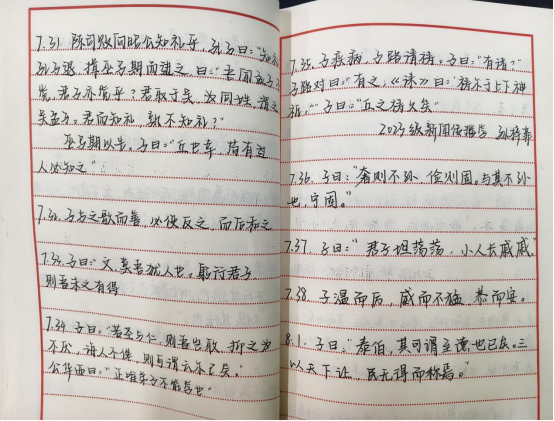 7.31. 陈司败问昭公知礼乎,孔子曰:“知礼
孔子退,揖巫马期而进之,曰:“吾闻君子不
党,君子亦党乎?君取于吴,为同姓,谓之
吴孟子。君而知礼,孰不知礼?”
巫马期以告。子曰:“丘也幸,苟有过
人必知之”
7.32. 子与人歌而善,必使反之,而后和之
7.33. 子曰:“文,莫吾犹人也。躬行君子
则吾未之有得
7.34. 子曰:“若圣与仁,则吾岂敢,抑为之
不厌,诲人不倦,则可谓云尔已矣。”
公华西曰:“正唯弟子不能学也”
7.35. 子疾病,子路请祷。子曰:“有诸?”
子路对曰:“有之,《诔》曰:‘祷尔于上下神
祇。’”子曰:“丘之祷久矣”
2023级新闻传播学
7.36. 子曰:“奢则不孙,俭则固。与其不孙
也,宁固。”
7.37. 子曰:“君子坦荡荡,小人长戚戚”
7.38. 子温而厉,威而不猛,恭而安。
8.1. 子曰:“泰伯,其可谓至德也已矣。三
以天下让,民无得而称焉。”